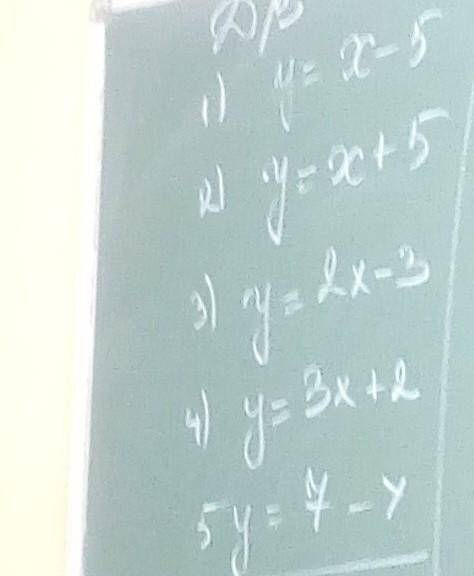 Д/з
1) y = x - 5
2) y = x + 5
3) y = 2x - 3
4) y = 3x + 2
5 y = 7 - x